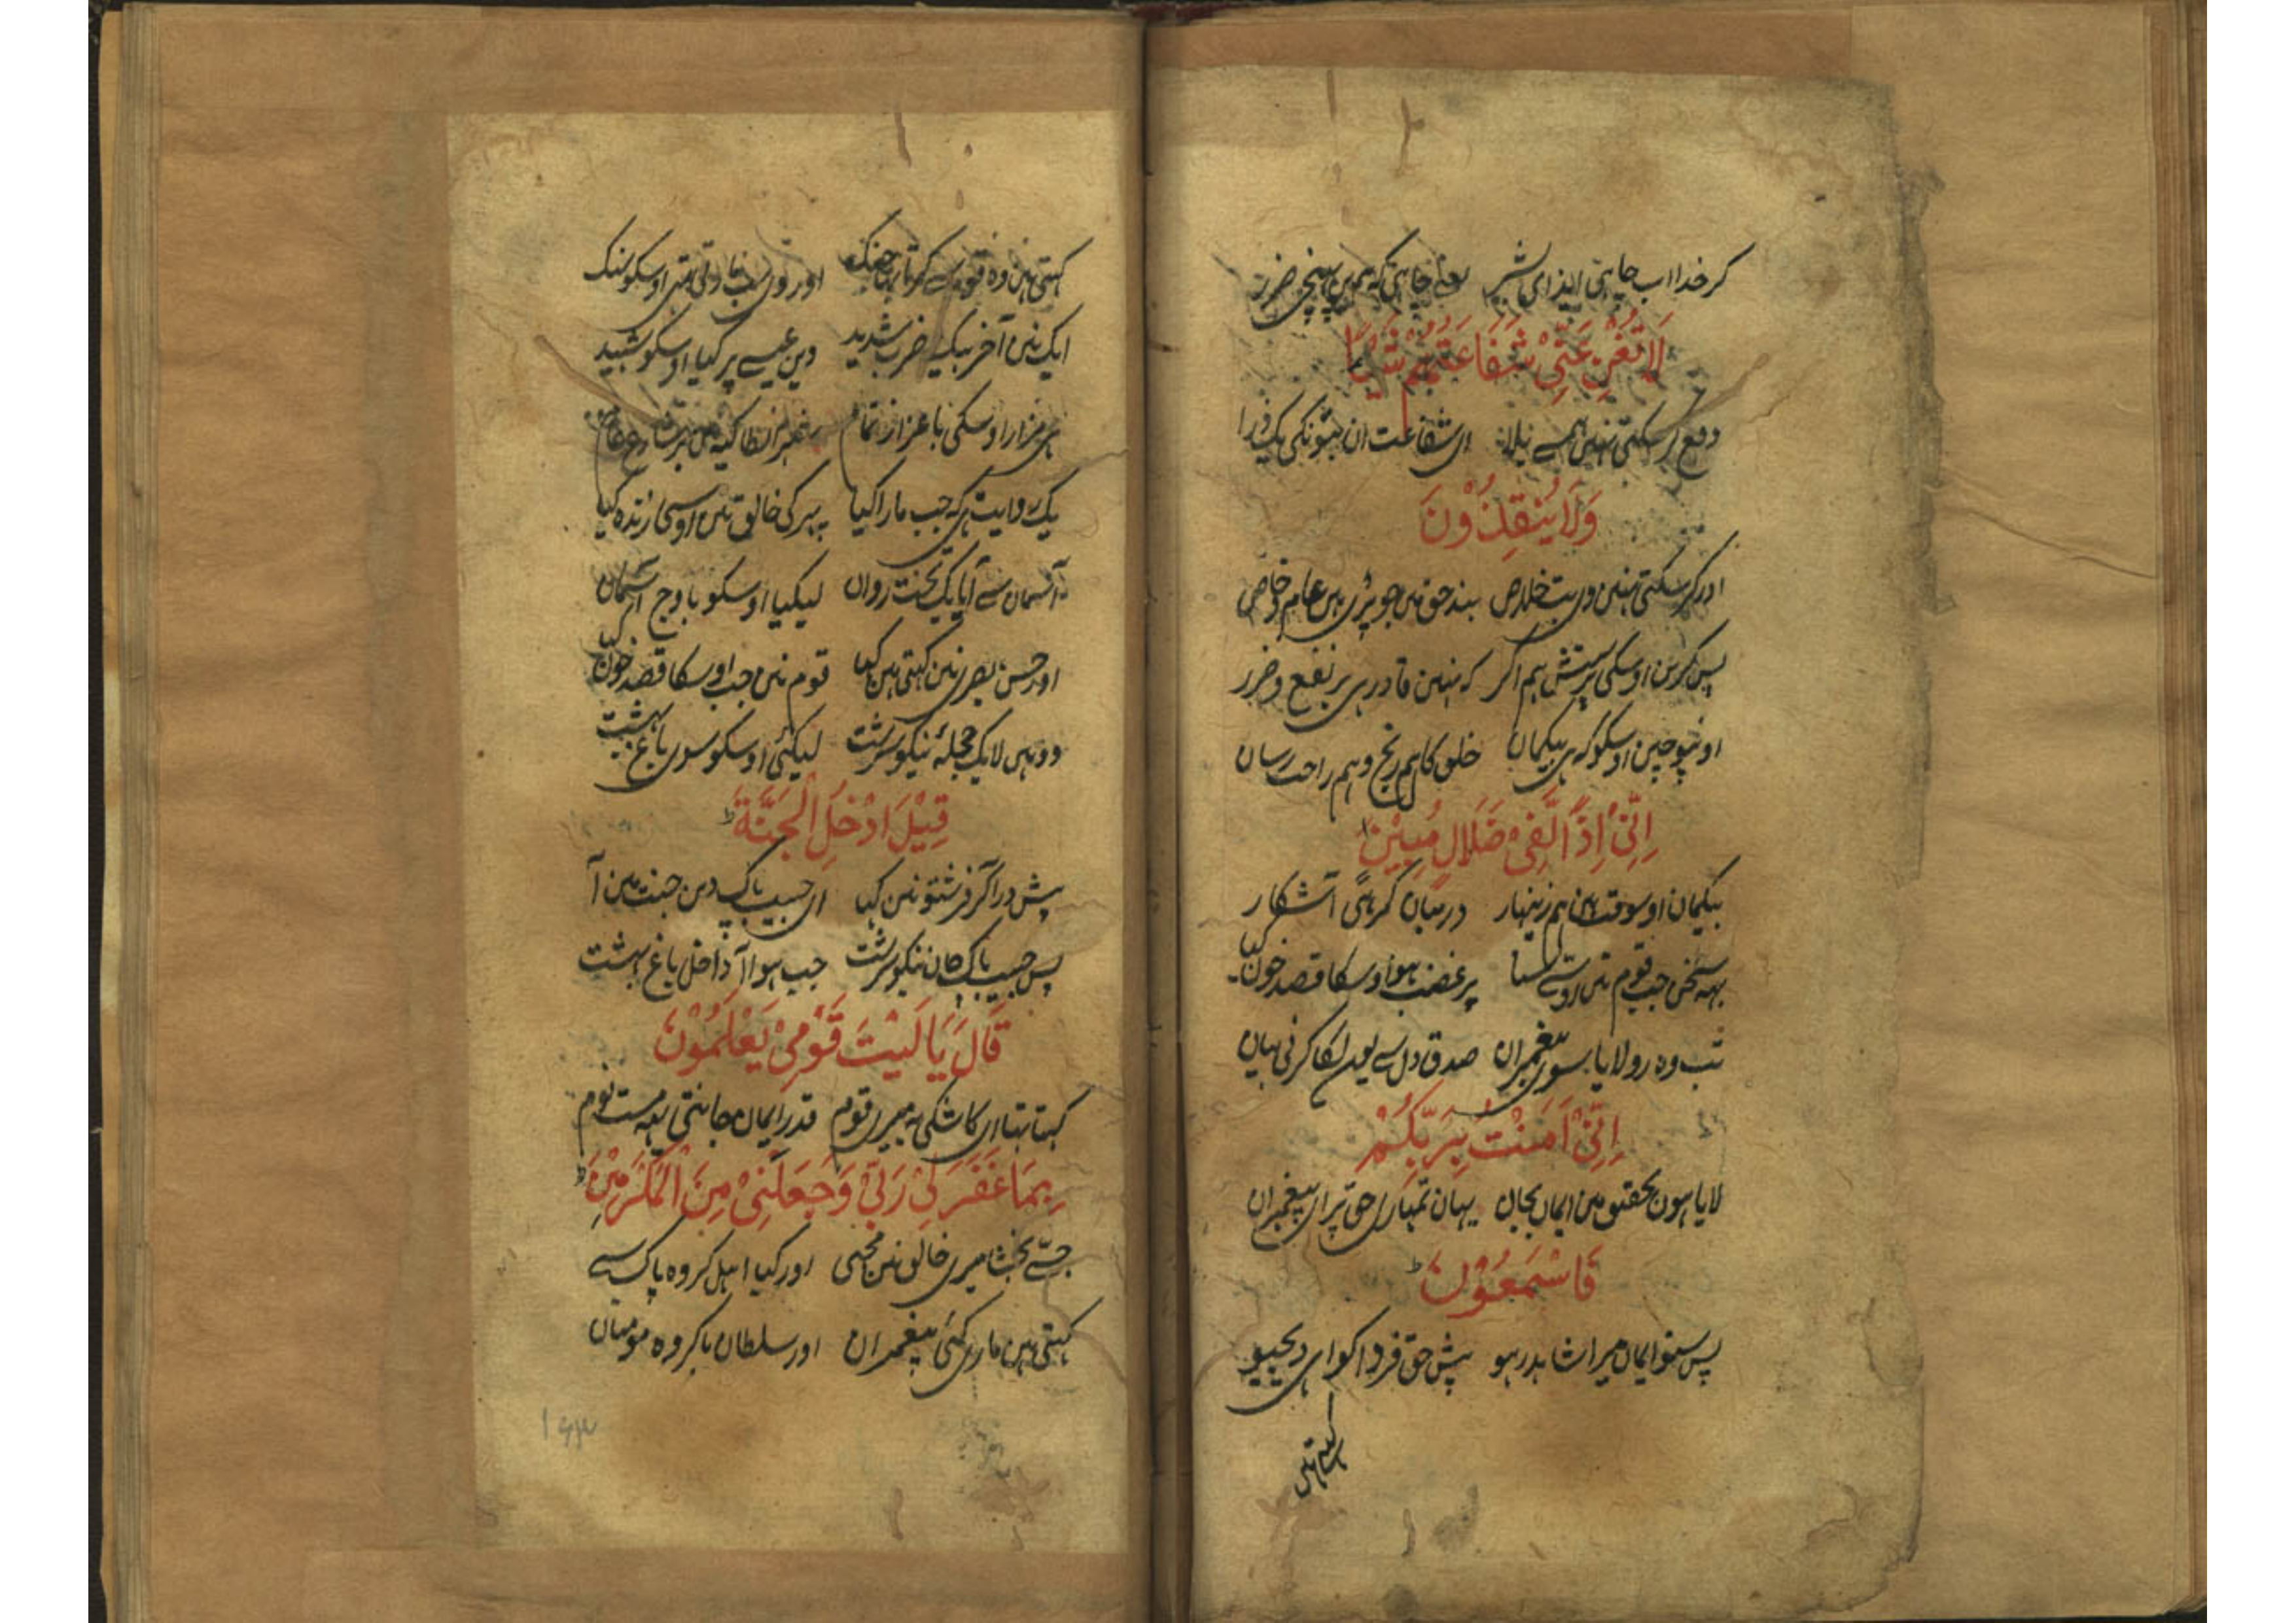 کر خدا اب چاہی ایذای شر یعنے چاہی کہ ہمیں پہنچی ضرر
لَا تُغْنِ عَنِّیْ شَفَاعَتُهُمْ شَیْئًا
دفع کر سکتی نہیں ہمسے بلا ای شفاعت ان بتونکی یک ذرا
وَلَا یُنْقِذُوْنَ
اور کر سکتی نہیں وی بت خلاص بند حق میں جو پڑی ہیں عام و خاص
پس کریں اوسکی پرستش ہم اگر کہ نہیں قادر ہی بر نفع و ضرر
اونپوجیں اوسکو کہ ہی بیکمان خلق کا ہم رنج و ہم راحت رسان
اِنِّیْ اِذًا لَّفِیْ ضَلَالٍ مُبِیْنٍ
بیکمان اوسوقت ہیں ہم زینہار درمیان کمرہی آشکار
یہہ سخن جب قوم نیں اوسے سنا پر غضب ہو اوسکا قصد خون کیا
تب وہ رو لایا بسوی پیغمبران صدق دل سے یون لکا کرنی بیان
اِنِّیْ اٰمَنْتُ بِرَبِّکُمْ
لایا ہون تحقیق میں ایمان بجان یہان تمہاری حق پر ای پیغمبران
فَاسْمَعُوْنِ
پس سنو ایمان میرا شاہد رہو پیش حق فردا کواہی دیجیو
کہتی ہین
کہتی ہین وہ قوم سے کرتا رہا جنک اور وی سب مارتی تہی اوسکو سنک
ایک نیں آخر بیک ضرب شدید دین عیسے پر کیا اوسکو شہید
ہی مزار اوسکی با عزاز تمام شہر انطاکیہ میں بر شارع عام
یک روایت ہی کہ جب مارا کیا پہر کی خالق نیں اوسی زندہ کیا
آسمان سے آیا یک تخت روان لیکیا اوسکو باوج آسمان
اور حسن بصری نیں کہتی ہین کہا قوم نیں جب اوسکا قصد خون کیا
دوہیں لا یک حجلہ نیکو سرشت لیکئی اوسکو سوی باغ بہشت
قِیْلَ ادْخُلِ الْجَنَّةَ
پیش در آ کر فرشتو نیں کہا ای حبیب پاک دین جنت میں آ
پس حبیب پاک جان نیکو سرشت جب ہوا آ داخل باغ بہشت
قَالَ یَا لَیْتَ قَوْمِیْ یَعْلَمُوْنَ
کہتا تہا ای کاشکی یہ میری قوم قدر ایمان جانتی یہہ مست نوم
بِمَا غَفَرَ لِیْ رَبِّیْ وَجَعَلَنِیْ مِنَ الْمُکْرَمِیْنَ
جسے بخشا میری خالق نیں مجہی اور کیا اہل کروہ پاک سے
کہتی ہین ماری کئی پیغمبران اور سلطان با کروہ مومنان